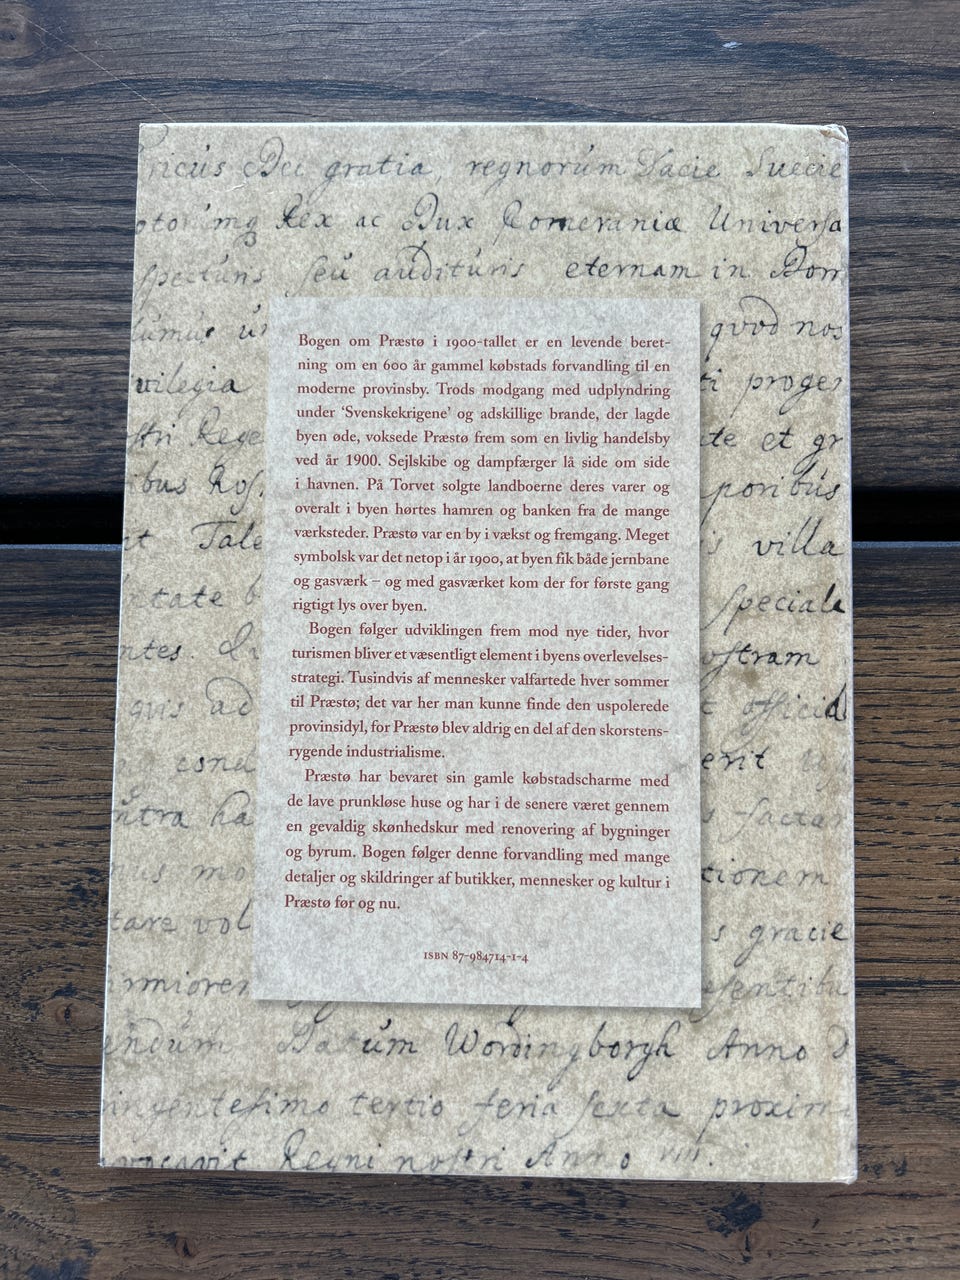 ricus Dei gratia, regnorum Dacie Suecie
Rex ac Dux Pomeraniæ Universa
seu audituris eternam in Dom
quod nos
vilegia
proger
et gr
bus
poribus
villa
speciale
ad
nostram
erit
ntra
factar
mo
tionem
vol
gracie
Datum Wordingborgh Anno
tertio feria sexta proxim
Regni nostri Anno VIII.
Bogen om Præstø i 1900-tallet er en levende beret-
ning om en 600 år gammel købstads forvandling til en
moderne provinsby. Trods modgang med udplyndring
under ‘Svenskekrigene’ og adskillige brande, der lagde
byen øde, voksede Præstø frem som en livlig handelsby
ved år 1900. Sejlskibe og dampfærger lå side om side
i havnen. På Torvet solgte landboerne deres varer og
overalt i byen hørtes hamren og banken fra de mange
værksteder. Præstø var en by i vækst og fremgang. Meget
symbolsk var det netop i år 1900, at byen fik både jernbane
og gasværk – og med gasværket kom der for første gang
rigtigt lys over byen.
Bogen følger udviklingen frem mod nye tider, hvor
turismen bliver et væsentligt element i byens overlevelses-
strategi. Tusindvis af mennesker valfartede hver sommer
til Præstø; det var her man kunne finde den uspolerede
provinsidyl, for Præstø blev aldrig en del af den skorstens-
rygende industrialisme.
Præstø har bevaret sin gamle købstadscharme med
de lave prunkløse huse og har i de senere været gennem
en gevaldig skønhedskur med renovering af bygninger
og byrum. Bogen følger denne forvandling med mange
detaljer og skildringer af butikker, mennesker og kultur i
Præstø før og nu.
ISBN 87-984714-1-4